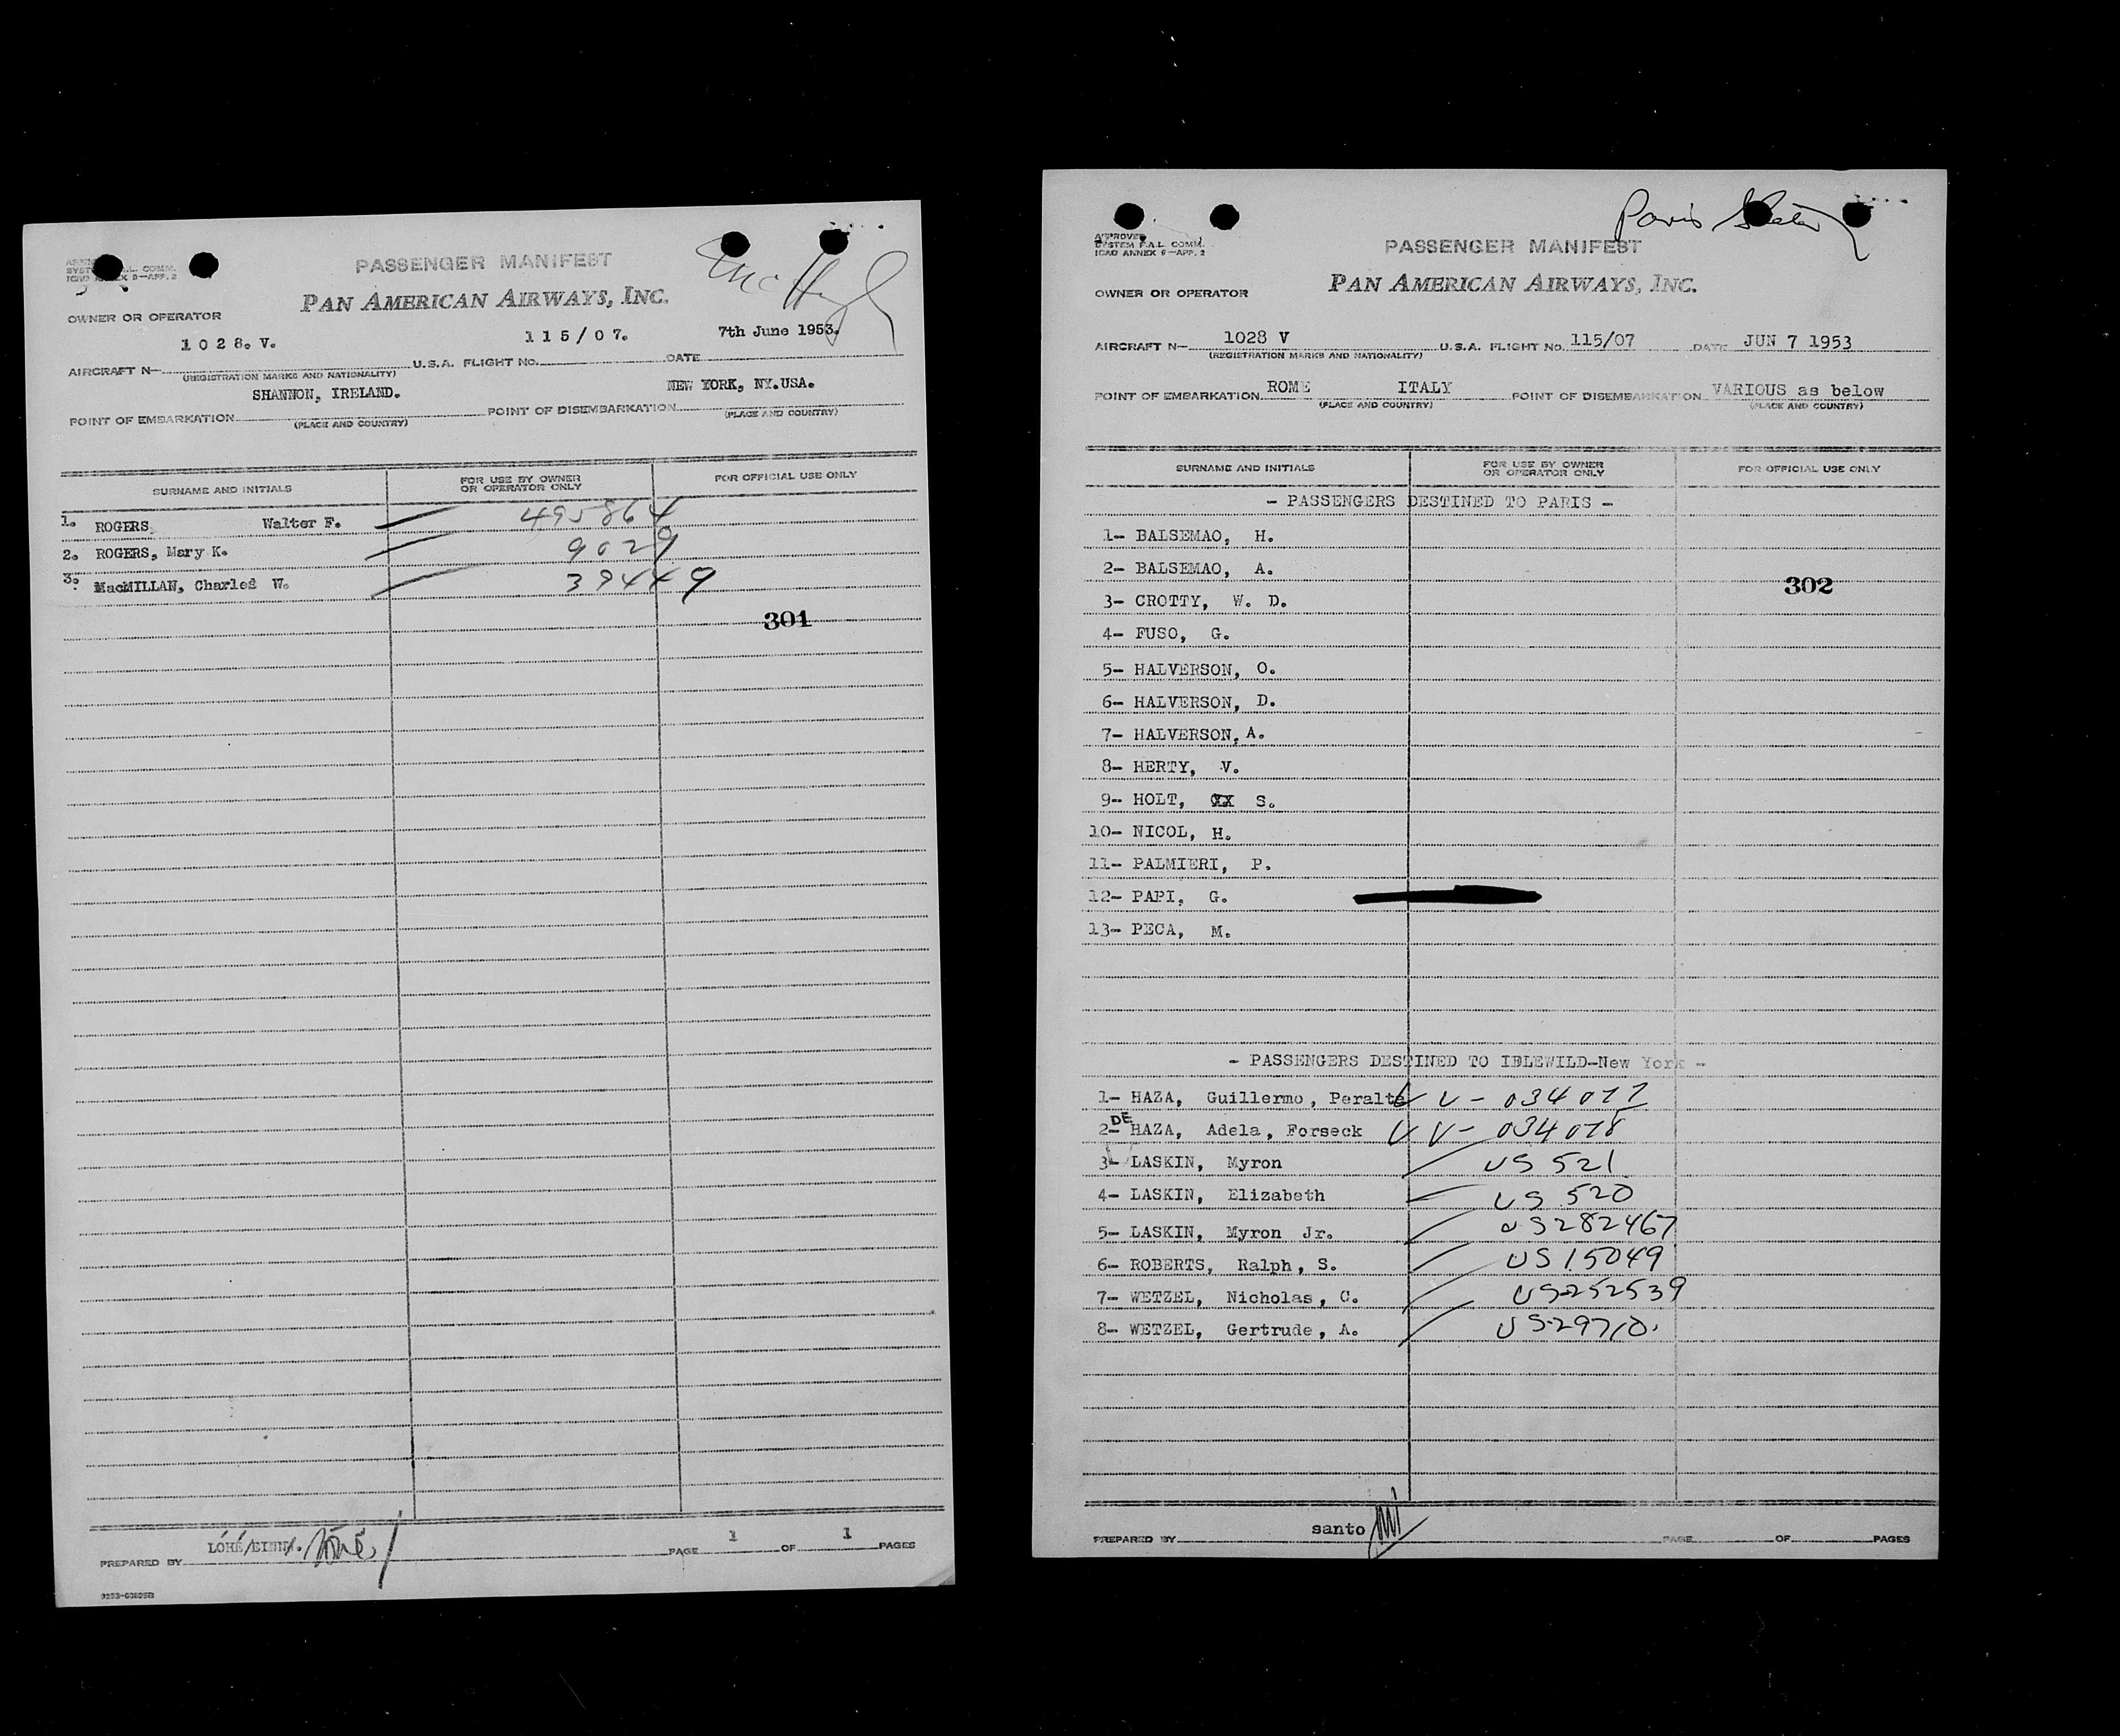 PASSENGER MANIFEST
PAN AMERICAN AIRWAYS, INC.
OWNER OR OPERATOR
1028. V. 115/07. 7th June 1953.
AIRCRAFT N— U.S.A. FLIGHT NO. DATE
(REGISTRATION MARKS AND NATIONALITY)
SHANNON, IRELAND. NEW YORK, NY.USA.
POINT OF EMBARKATION POINT OF DISEMBARKATION
(PLACE AND COUNTRY) (PLACE AND COUNTRY)
SURNAME AND INITIALS FOR USE BY OWNER OR OPERATOR ONLY FOR OFFICIAL USE ONLY
1. ROGERS Walter F. 495864
2. ROGERS, Mary K. 9029
3. MacMILLAN, Charles W. 39449
301
PREPARED BY PAGE 1 OF 1 PAGES
APPROVED
SYSTEM F.A.L. COMM.
ICAO ANNEX 9—APP. 2
Paris
PASSENGER MANIFEST
PAN AMERICAN AIRWAYS, INC.
OWNER OR OPERATOR
AIRCRAFT N— 1028 V U.S.A. FLIGHT NO. 115/07 DATE JUN 7 1953
(REGISTRATION MARKS AND NATIONALITY)
POINT OF EMBARKATION ROME ITALY POINT OF DISEMBARKATION VARIOUS as below
(PLACE AND COUNTRY) (PLACE AND COUNTRY)
SURNAME AND INITIALS FOR USE BY OWNER OR OPERATOR ONLY FOR OFFICIAL USE ONLY
- PASSENGERS DESTINED TO PARIS -
1- BALSEMAO, H.
2- BALSEMAO, A.
302
3- CROTTY, W. D.
4- FUSO, G.
5- HALVERSON, O.
6- HALVERSON, D.
7- HALVERSON, A.
8- HERTY, V.
9- HOLT, S.
10- NICOL, H.
11- PALMIERI, P.
12- PAPI, G.
13- PECA, M.
- PASSENGERS DESTINED TO IDLEWILD-New York -
1- HAZA, Guillermo, Peralta V - 034077
2- DE HAZA, Adela, Forseck V - 034078
3- LASKIN, Myron US 521
4- LASKIN, Elizabeth US 520
5- LASKIN, Myron Jr. US 282467
6- ROBERTS, Ralph, S. US 15049
7- WETZEL, Nicholas, C. US 252539
8- WETZEL, Gertrude, A. US 29710
PREPARED BY santo PAGE OF PAGES